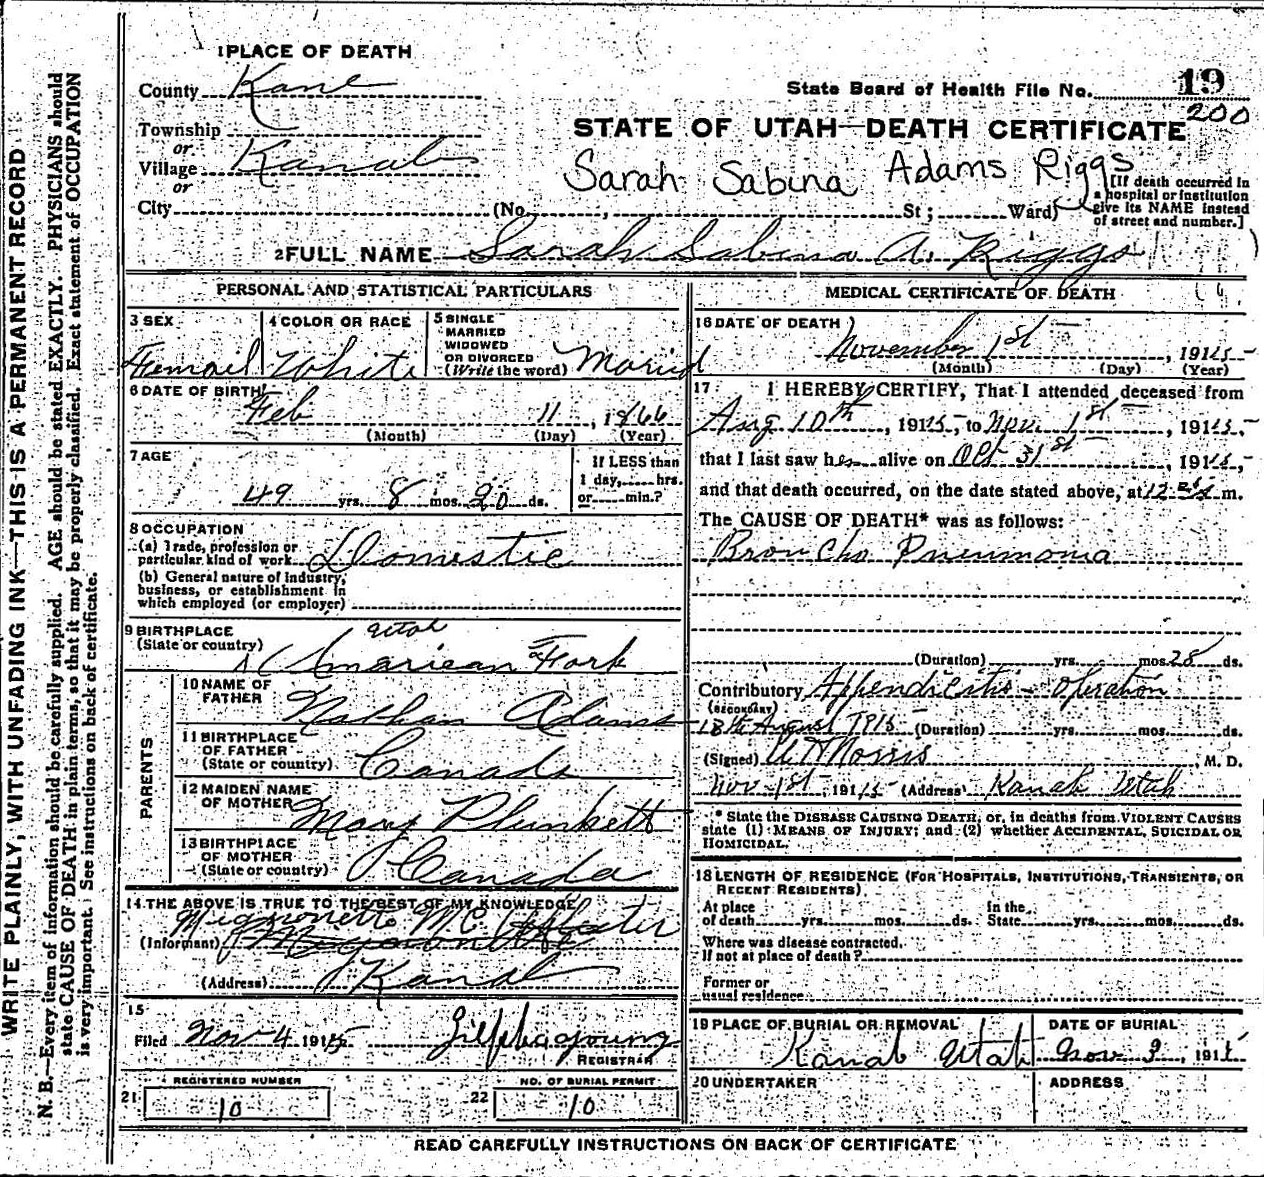 WRITE PLAINLY, WITH UNFADING INK—THIS IS A PERMANENT RECORD
N. B.—Every item of information should be carefully supplied. AGE should be stated EXACTLY. PHYSICIANS should
state CAUSE OF DEATH in plain terms, so that it may be properly classified. Exact statement of OCCUPATION
is very important. See instructions on back of certificate.
1 PLACE OF DEATH
County Kane
State Board of Health File No. 19
200
Township
or
STATE OF UTAH—DEATH CERTIFICATE
Village Kanab
or
Sarah Sabina Adams Riggs
City (No. , St ; Ward)
[If death occurred in
a hospital or institution
give its NAME instead
of street and number.]
2 FULL NAME Sarah Sabina A. Riggs
PERSONAL AND STATISTICAL PARTICULARS
3 SEX
Femail
4 COLOR OR RACE
White
5 SINGLE
MARRIED
WIDOWED
OR DIVORCED
(Write the word) Maried
6 DATE OF BIRTH
Feb 11, 1866
(Month) (Day) (Year)
7 AGE
49 yrs. 8 mos. 20 ds.
If LESS than
1 day, hrs.
or min.?
8 OCCUPATION
(a) Trade, profession or
particular kind of work Domestic
(b) General nature of industry,
business, or establishment in
which employed (or employer)
9 BIRTHPLACE
(State or country)
Utah
American Fork
PARENTS
10 NAME OF
FATHER Nathan Adams
11 BIRTHPLACE
OF FATHER
(State or country) Canada
12 MAIDEN NAME
OF MOTHER Mary Plunkett
13 BIRTHPLACE
OF MOTHER
(State or country) Canada
14 THE ABOVE IS TRUE TO THE BEST OF MY KNOWLEDGE
Mignonette M.C.
(Informant)
(Address) Kanab
15
Filed Nov 4 1915 Zilpha Young
REGISTRAR
REGISTERED NUMBER
21 10
NO. OF BURIAL PERMIT
22 10
MEDICAL CERTIFICATE OF DEATH
16 DATE OF DEATH
November 1st, 1915
(Month) (Day) (Year)
17 I HEREBY CERTIFY, That I attended deceased from
Aug 10th, 1915, to Nov. 1st, 1915,
that I last saw her alive on Oct 31st, 1915,
and that death occurred, on the date stated above, at 12 m.
The CAUSE OF DEATH* was as follows:
Broncho Pneumonia
(Duration) yrs. mos. 28 ds.
Contributory Appendicitis - Operation
(SECONDARY)
18th August 1915 (Duration) yrs. mos. ds.
(Signed) Morris, M. D.
Nov-1st, 1915 (Address) Kanab Utah
* State the DISEASE CAUSING DEATH, or, in deaths from VIOLENT CAUSES
state (1) MEANS OF INJURY; and (2) whether ACCIDENTAL, SUICIDAL OR
HOMICIDAL.
18 LENGTH OF RESIDENCE (FOR HOSPITALS, INSTITUTIONS, TRANSIENTS, OR
RECENT RESIDENTS)
At place
of death yrs. mos. ds.
In the
State yrs. mos. ds.
Where was disease contracted,
If not at place of death?
Former or
usual residence
19 PLACE OF BURIAL OR REMOVAL
Kanab Utah
DATE OF BURIAL
Nov 3, 1915
20 UNDERTAKER
ADDRESS
READ CAREFULLY INSTRUCTIONS ON BACK OF CERTIFICATE